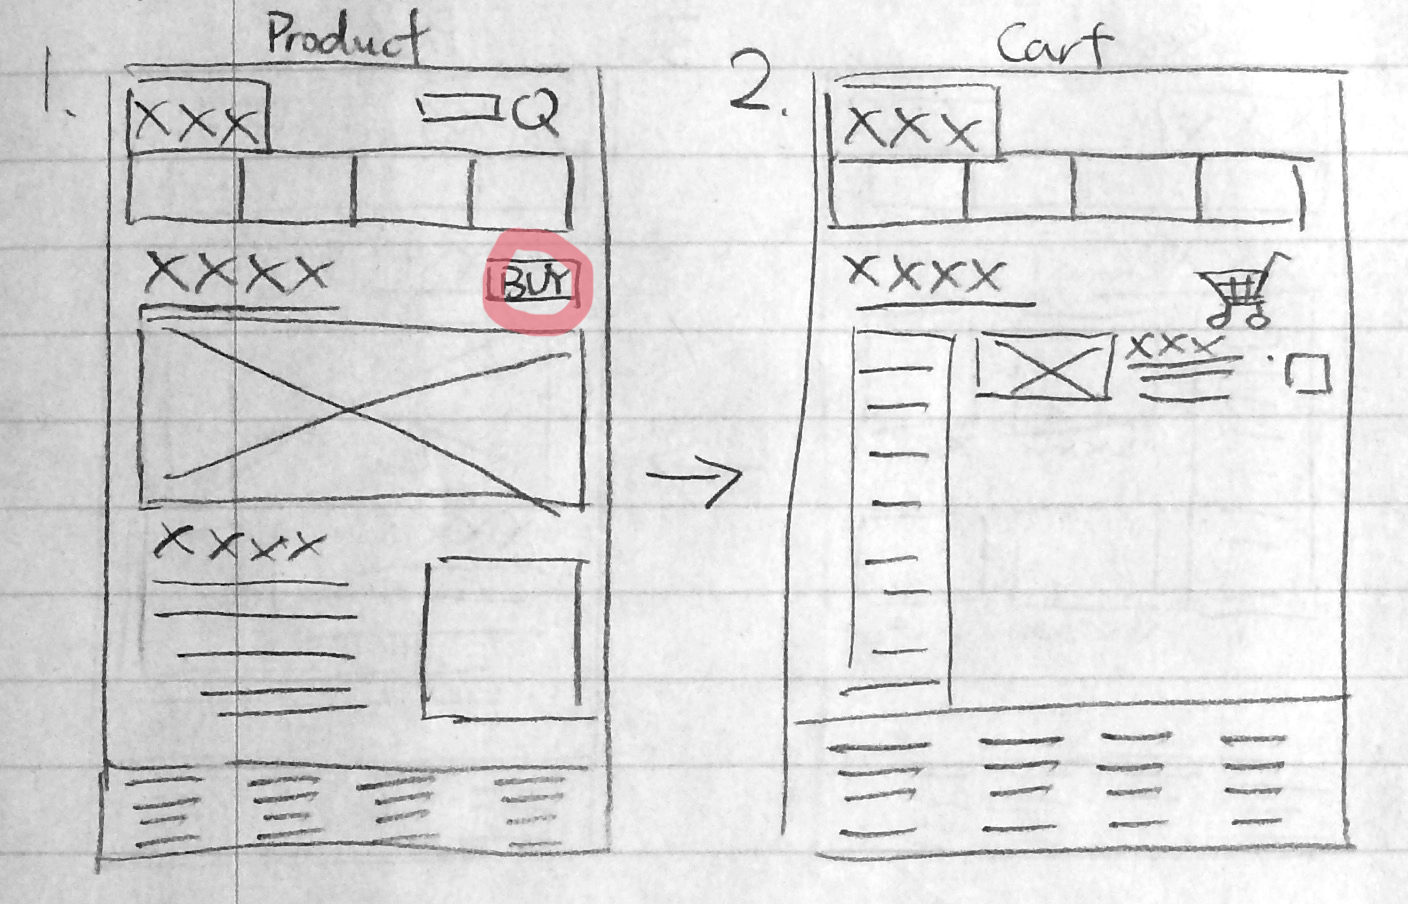 Product
1.
XXX
Q
XXXX
BUY
XXXX
Cart
2.
XXX
XXXX
XXX